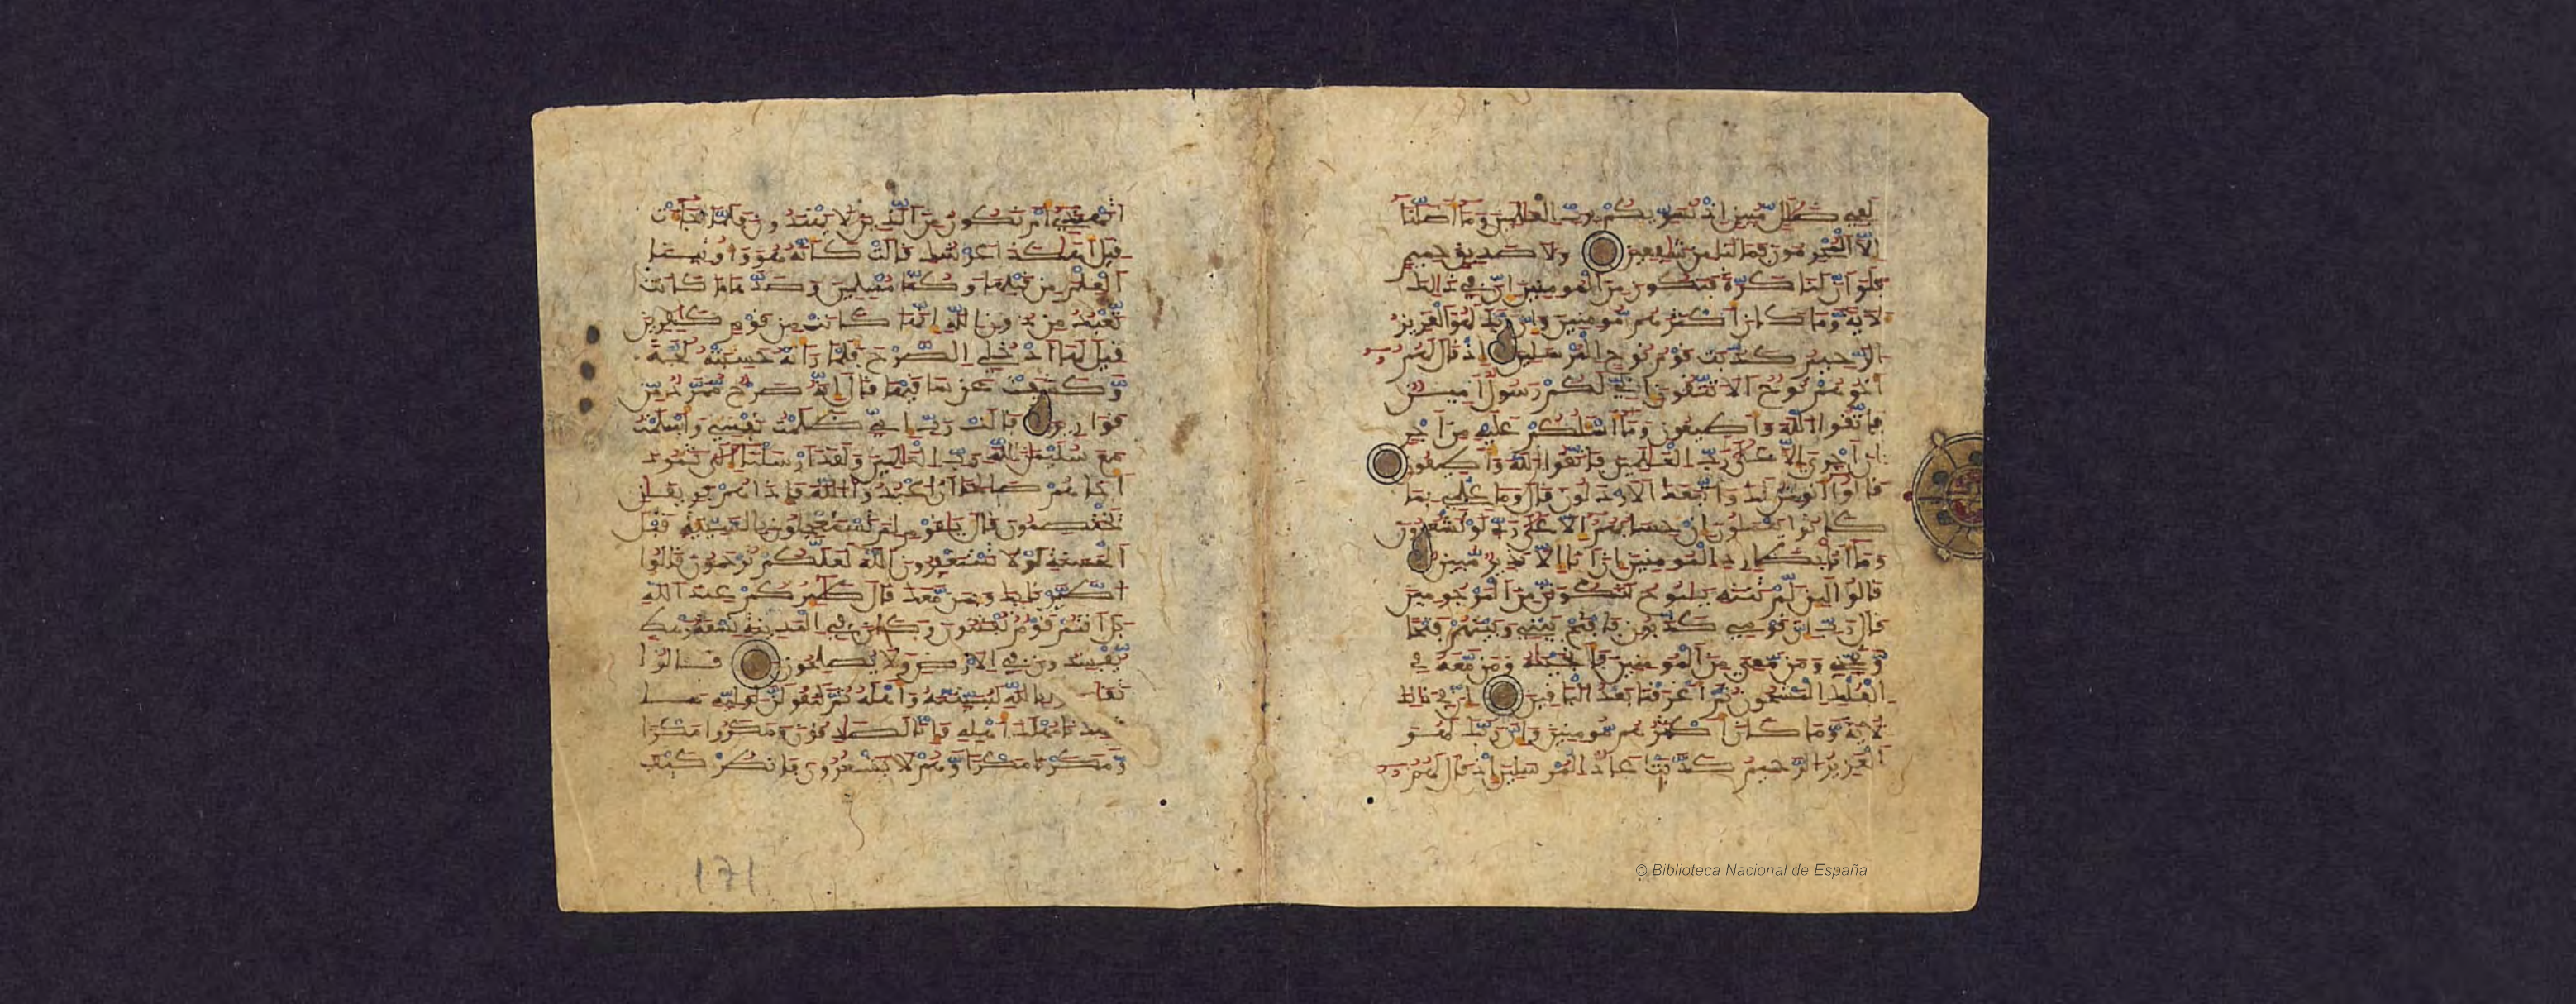 لفي ضلل مبين اذ نسويكم برب العلمين وما اضلنا
الا المجرمون فما لنا من شفعين ولا صديق حميم
فلو ان لنا كرة فنكون من المومنين ان في ذلك
لاية وما كان اكثرهم مومنين وان ربك لهو العزيز
الرحيم كذبت قوم نوح المرسلين اذ قال لهم
اخوهم نوح الا تتقون اني لكم رسول امين
فاتقوا الله واطيعون وما اسلكم عليه من اجر
ان اجري الا على رب العلمين فاتقوا الله واطيعون
قالوا انومن لك واتبعك الارذلون قال وما علمي بما
كانوا يعملون ان حسابهم الا على ربي لو تشعرون
وما انا بطارد المومنين ان انا الا نذير مبين
قالوا لين لم تنته ينوح لتكونن من المرجومين
قال رب ان قومي كذبون فافتح بيني وبينهم فتحا
ونجني ومن معي من المومنين فانجينه ومن معه في
الفلك المشحون ثم اغرقنا بعد الباقين ان في ذلك
لاية وما كان اكثرهم مومنين وان ربك لهو
العزيز الرحيم كذبت عاد المرسلين اذ قال لهم
اتهتدي ام تكون من الذين لا يهتدون فلما جاءت
قيل اهكذا عرشك قالت كانه هو واوتينا
العلم من قبلها وكنا مسلمين وصدها ما كانت
تعبد من دون الله انها كانت من قوم كفرين
قيل لها ادخلي الصرح فلما راته حسبته لجة
وكشفت عن ساقيها قال انه صرح ممرد من
قوارير قالت رب اني ظلمت نفسي واسلمت
مع سليمن لله رب العلمين ولقد ارسلنا الى ثمود
اخاهم صلحا ان اعبدوا الله فاذا هم فريقان
يختصمون قال يقوم لم تستعجلون بالسيية قبل
الحسنة لولا تستغفرون الله لعلكم ترحمون قالوا
اطيرنا بك وبمن معك قال طيركم عند الله
بل انتم قوم تفتنون وكان في المدينة تسعة رهط
يفسدون في الارض ولا يصلحون قالوا
بالله لنبيتنه واهله ثم لنقولن لوليه ما
شهدنا مهلك اهله وانا لصدقون ومكروا مكرا
ومكرنا مكرا وهم لا يشعرون فانظر كيف
171
© Biblioteca Nacional de España